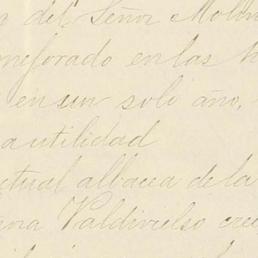 del Señor Molin
meforado en las
en un solo año,
a utilidad
ctual albacea de la
Valdivielso cre